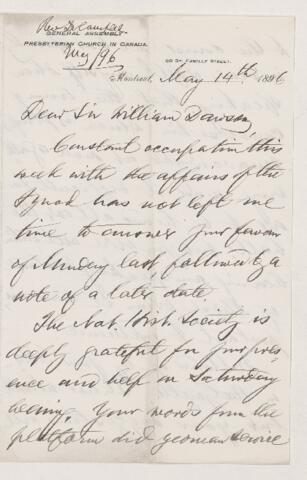 Rev. Dr Campbell
GENERAL ASSEMBLY
PRESBYTERIAN CHURCH IN CANADA.
May / 96
68 ST. FAMILLE STREET.
Montreal, May 14th 1896
Dear Sir William Dawson,
Constant occupation this
week with the affairs of the
Synod has not left me
time to answer your favour
of Monday last, followed by a
note of a later date.
The Nat. Hist. Society is
deeply grateful for your pres-
ence and help on Saturday
evening. Your words from the
platform did yeoman service